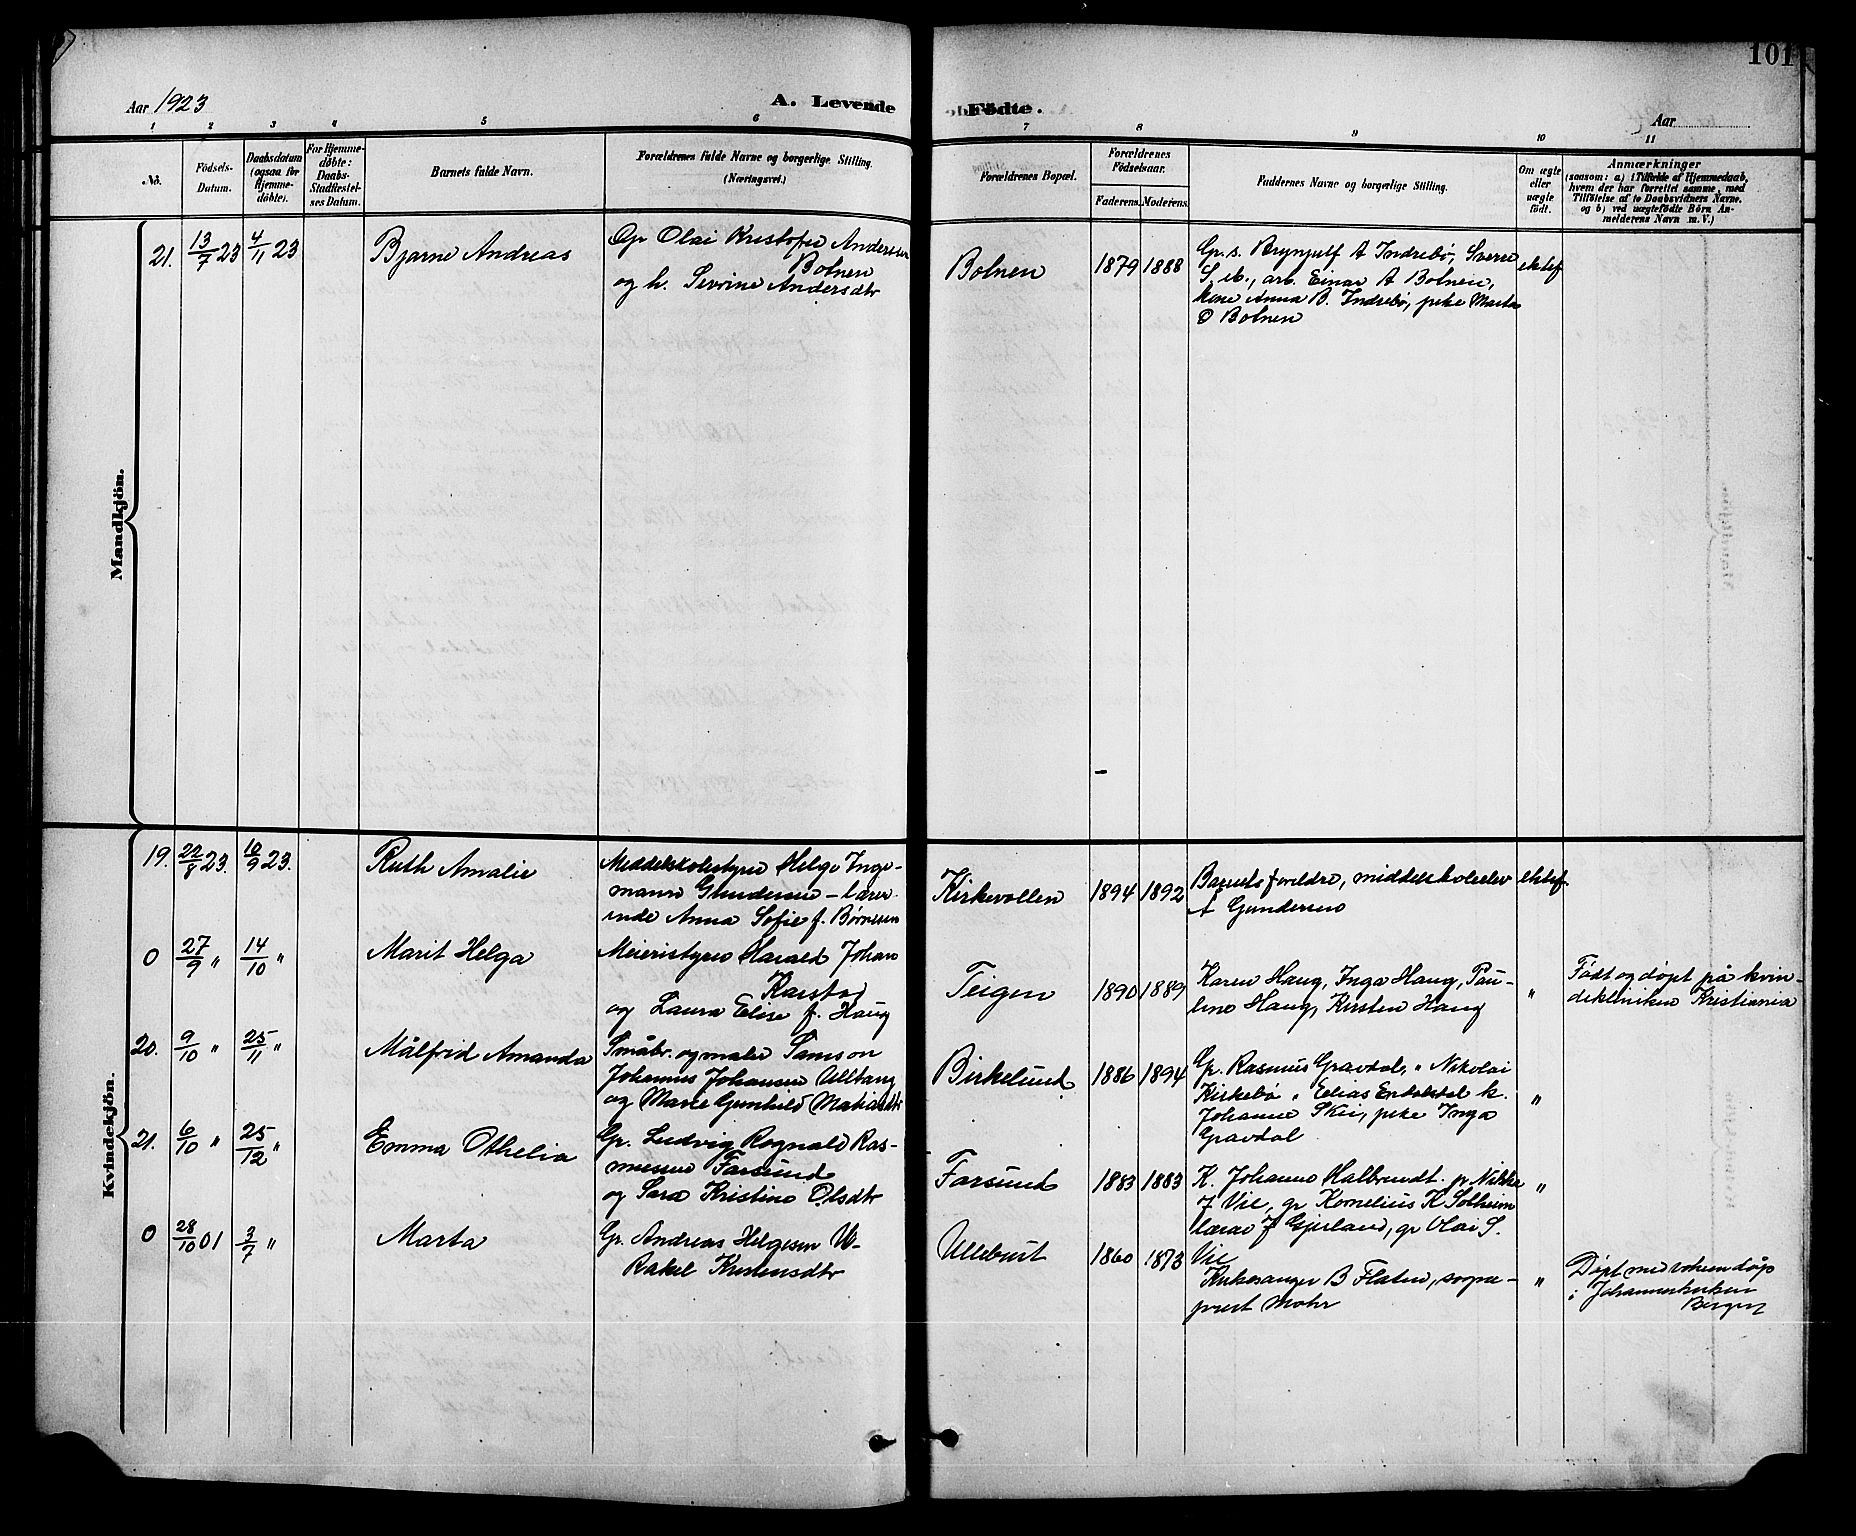 101
Aar 1923
A. Levende Födte.
Aar
1 2 3 4 5 6 7 8 9 10 11
No.
Födsels-
Datum.
Daabsdatum
(ogsaa for
Hjemme-
döbte).
For Hjemme-
döbte:
Daabs-
Stadfæstel-
ses Datum.
Barnets fulde Navn.
Forældrenes fulde Navne og borgerlige Stilling.
(Næringsvei.)
Forældrenes Bopæl.
Forældrenes
Födselsaar.
Faderens. Moderens.
Faddernes Navne og borgerlige Stilling.
Om ægte
eller
uægte
födt.
Anmærkninger
(saasom: a) i Tilfælde af Hjemmedaab,
hvem der har forrettet samme, med
Tilföielse af to Daabsvidners Navne.
og b) ved uægtefödte Börn An-
melderens Navn m. V.)
Mandkjön.
21. 13/7 23 4/11 23 Bjarne Andreas
Gr Olai Kristofer Andersen
Botnen
og h. Sevrine Andersdtr
Botnen 1879 1888
Gr. s. Brynjulf A Indrebø, Sverre
S. ib., arb. Einar A Botnen,
kone Anna B. Indrebø, pike Marta
O Botnen
ektef
Kvindekjön.
19. 22/8 23. 10/9 23. Ruth Amalie
Middelskolestyrer Helge Inge-
mann Gundersen – lærer-
inde Anna Sofie f. Børnesen
Kirkevollen 1894 1892
Barnets foreldre, middelskoleelev
A Gundersen
ektef.
0 27/9 " 14/10 " Marit Helga
Meieristyrer Harald Johan
Karstad
og Laura Elise f. Haug
Teigen 1890 1889
Karen Haug, Inga Haug, Pau-
line Haug, Kirsten Haug
"
Født og døpt på kvin-
dekliniken Kristiania
20. 9/10 " 25/11 " Målfrid Amanda
Småbr. og maler Samson
Johannes Johansen Ulltang
og Marie Gunhild Matiasdtr
Birkelund 1886 1894
Gr. Rasmus Gravdal, " Nikolai
Kirkebø " Elias Endestad k.
Johanne Skei, pike Inga
Gravdal
"
21. 6/10 " 25/12 " Emma Othelia
Gr. Ludvig Ragnald Ras-
mussen Farsund
og Sara Kristine Olsdtr
Farsund 1883 1883
K. Johanne Halbrendt. p. Nikka
J Vie, gr Kornelius K Solheim
lærer J Gjerland, gr Olai S.
Vie
"
0 28/10 01 3/7 " Marta
Gr. Andreas Helgesen U-
Rakel Kristensdtr
Ullebust 1860 1873
Kirkesanger B Flaten, sogne-
prest Mohr
"
Døpt med voksendøp
i Johanneskirken
Bergen